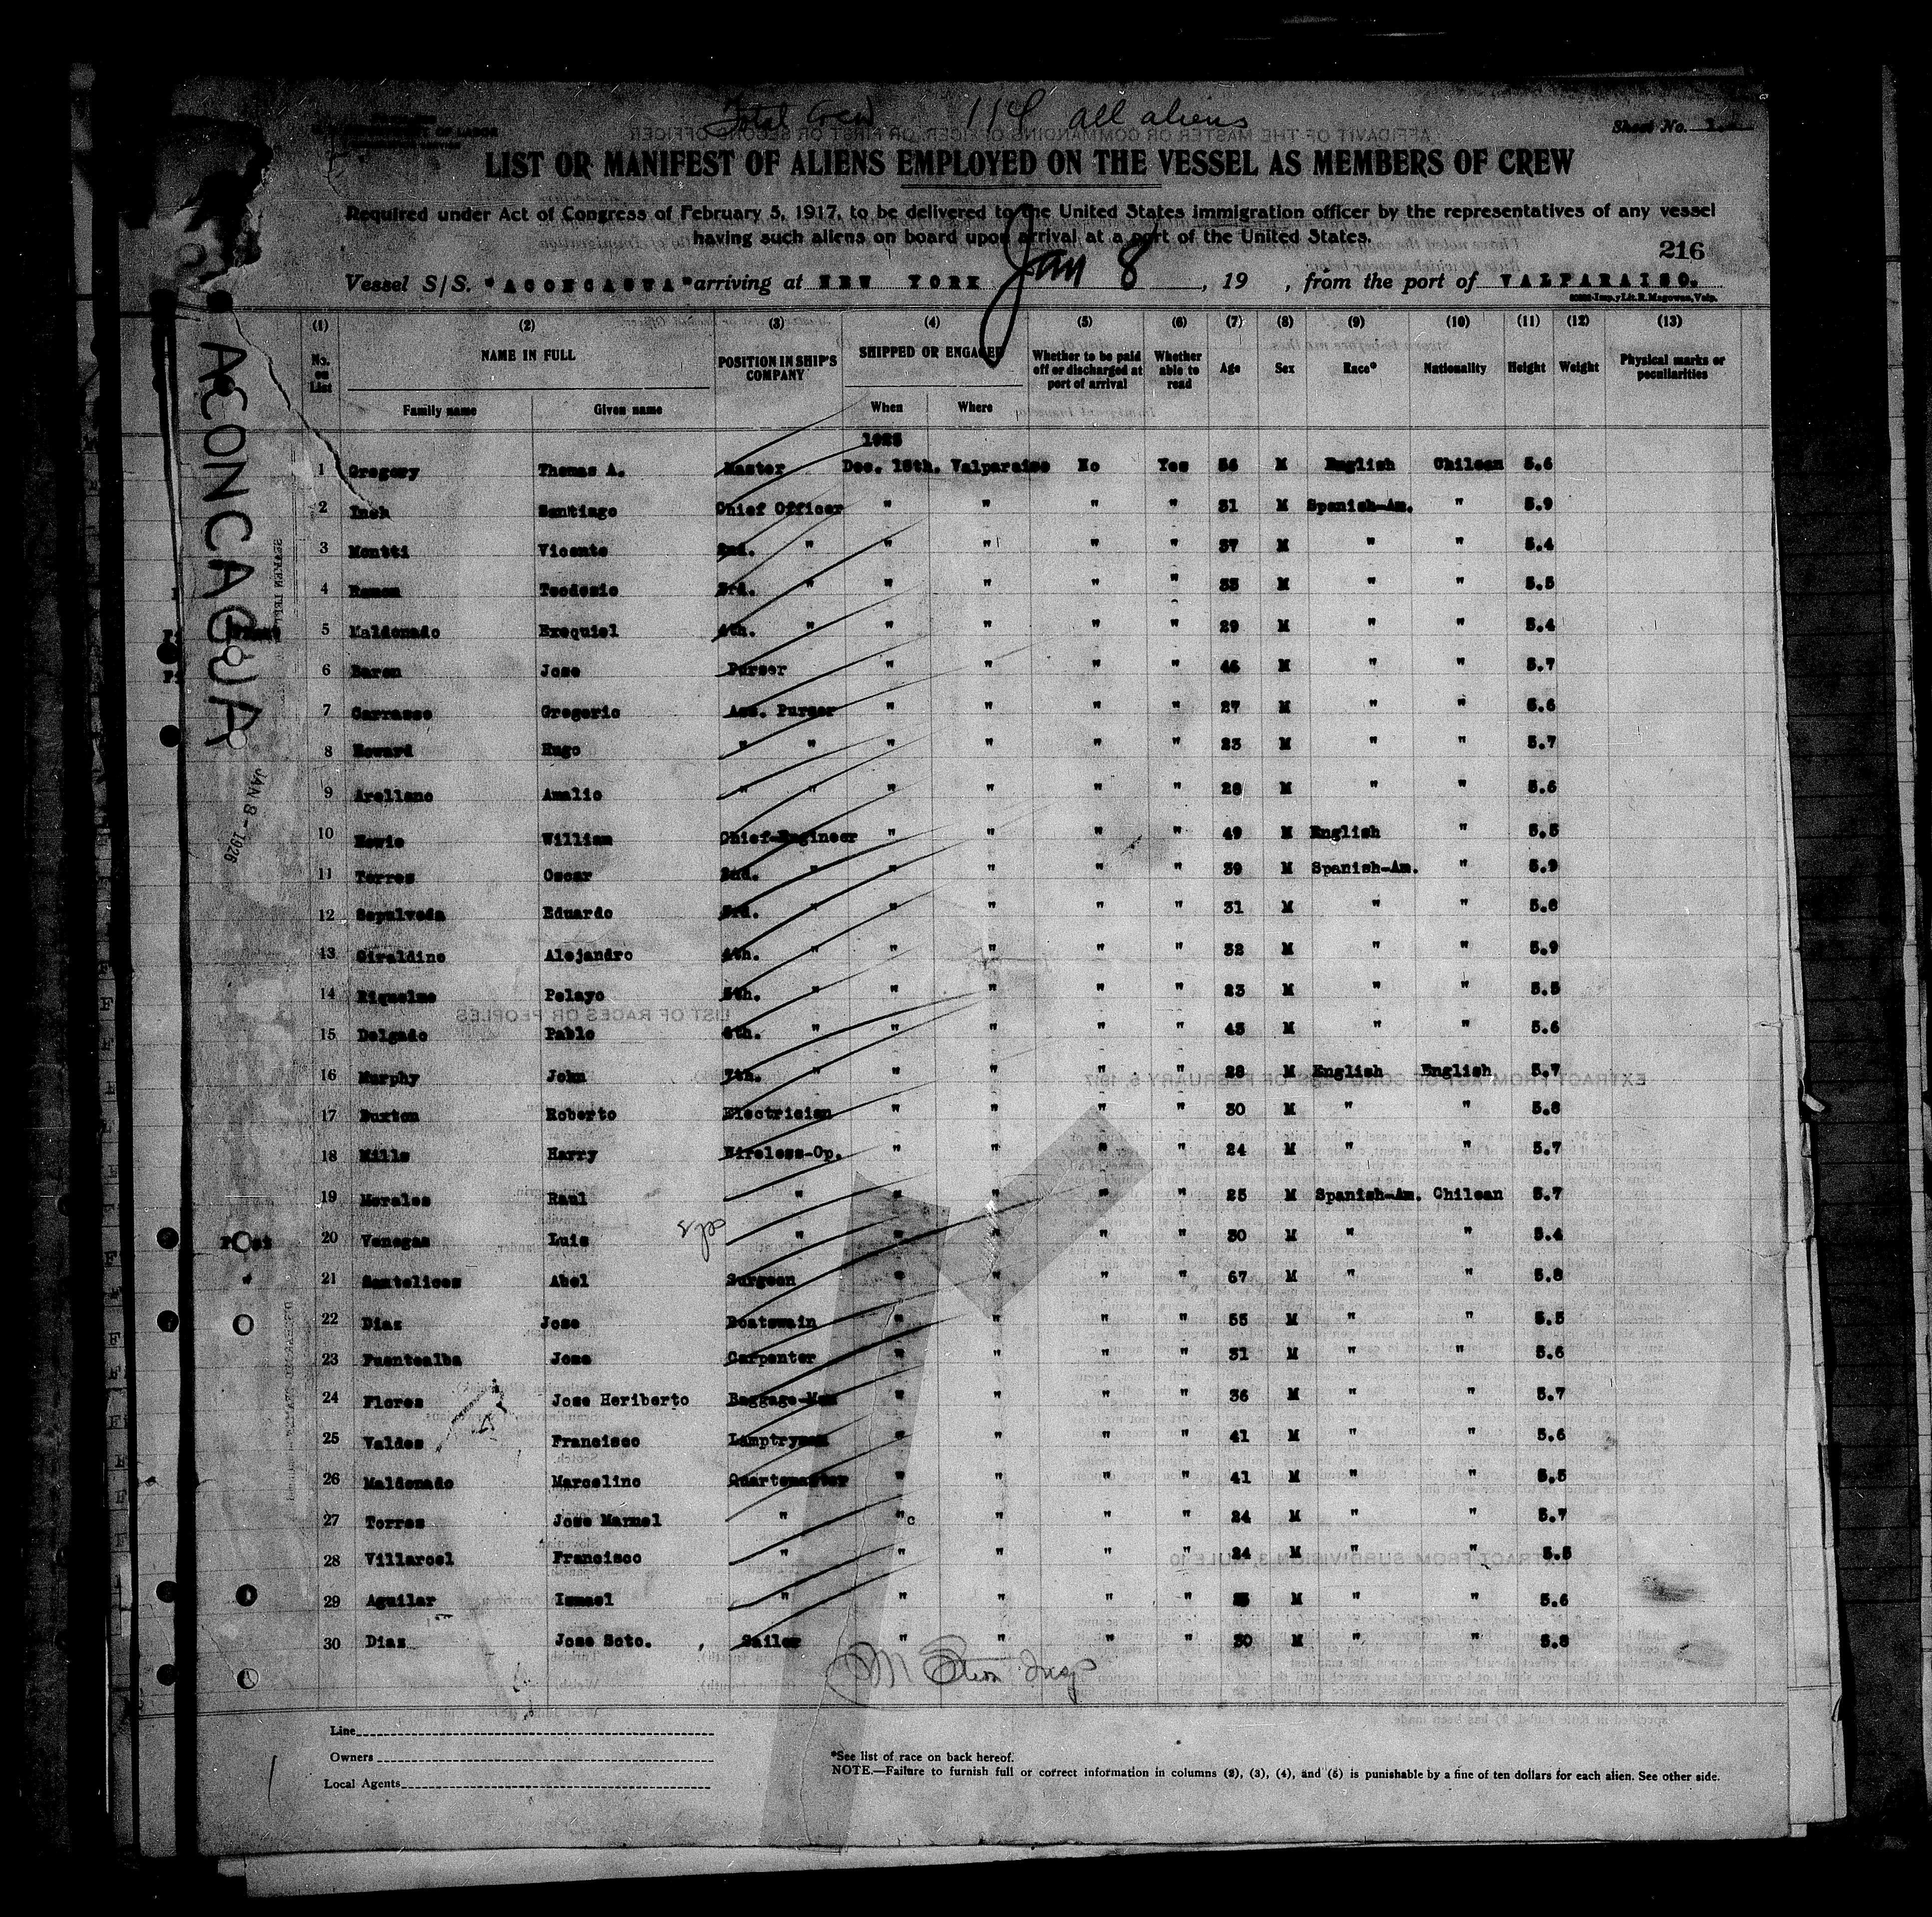 Total Crew 114 all aliens
Sheet No. 1.
LIST OR MANIFEST OF ALIENS EMPLOYED ON THE VESSEL AS MEMBERS OF CREW
Required under Act of Congress of February 5, 1917, to be delivered to the United States immigration officer by the representatives of any vessel
having such aliens on board upon arrival at a port of the United States.
216
Vessel S/S. "ACONCAGUA" arriving at NEW YORK Jan 8, 19 , from the port of VALPARAISO.
(1) (2) (3) (4) (5) (6) (7) (8) (9) (10) (11) (12) (13)
No. on List NAME IN FULL POSITION IN SHIP'S COMPANY SHIPPED OR ENGAGED Whether to be paid off or discharged at port of arrival Whether able to read Age Sex Race* Nationality Height Weight Physical marks or peculiarities
Family name Given name When Where
1925
1 Gregory Thomas A. Master Dec. 15th. Valparaiso No Yes 54 M English Chilean 5.6
2 Inch Santiago Chief Officer " " " " 31 M Spanish-Am. " 5.9
3 Montti Vicente 2nd. " " " " " 37 M " " 5.4
4 Ramon Teodosio 3rd. " " " " " 33 M " " 5.5
5 Maldonado Exequiel 4th. " " " " " 29 M " " 5.4
6 Baron Jose Purser " " " " 46 M " " 5.7
7 Carrasco Gregorio Ass. Purser " " " " 27 M " " 5.6
8 Howard Hugo " " " " " " 23 M " " 5.7
9 Arellano Amalio " " " " " " 28 M " " 5.6
10 Howie William Chief-Engineer " " " " 49 M English " 5.5
11 Torres Oscar 2nd. " " " " " 39 M Spanish-Am. " 5.9
12 Sepulveda Eduardo 3rd. " " " " " 31 M " " 5.8
13 Giraldino Alejandro 4th. " " " " " 32 M " " 5.9
14 Riquelme Pelayo 5th. " " " " " 23 M " " 5.5
15 Delgado Pablo 6th. " " " " " 45 M " " 5.6
16 Murphy John 7th. " " " " " 28 M English English 5.7
17 Buxton Roberto Electrician " " " " 30 M " " 5.8
18 Mills Harry Wireless-Op. " " " " 24 M " " 5.7
19 Morales Raul " " " " " 25 M Spanish-Am. Chilean 5.7
20 Venegas Luis " " " " " 30 M " " 5.4
21 Santelices Abel Surgeon " " " " 67 M " " 5.8
22 Diaz Jose Boatswain " " " " 55 M " " 5.5
23 Fuentealba Jose Carpenter " " " " 31 M " " 5.6
24 Flores Jose Heriberto Baggage-Man " " " " 36 M " " 5.7
25 Valdes Francisco Lamptryman " " " " 41 M " " 5.6
26 Maldonado Marcelino Quartemaster " " " " 41 M " " 5.5
27 Torres Jose Manuel " " " " " 24 M " " 5.7
28 Villaroel Francisco " " " " " 24 M " " 5.5
29 Aguilar Ismael " " " " " M " " 5.6
30 Diaz Jose Soto. Sailor " " " " 30 M " " 5.8
Insp
Line
Owners
Local Agents
*See list of race on back hereof.
NOTE.—Failure to furnish full or correct information in columns (2), (3), (4), and (5) is punishable by a fine of ten dollars for each alien. See other side.
ACONCAGUA
JAN 8 - 1926